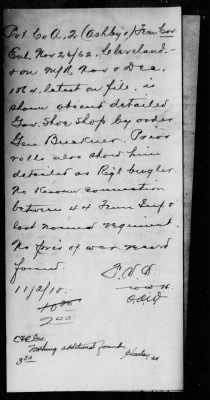 Pvt Co A, 2 (Ashby's) Tenn Cav
Enl. Nov 26/62, Cleveland.-
& on M/R Nov & Dec,
1864, latest on file, is
shown absent detailed
Gov. Shoe Shop by order
Gen. Buckner. Prior
rolls also show him
detailed as Regl bugler.
No Known connection
between 44 Tenn Inf &
last named regiment.
No pris of war record
found.
11/2/15.
200
Nothing additional found